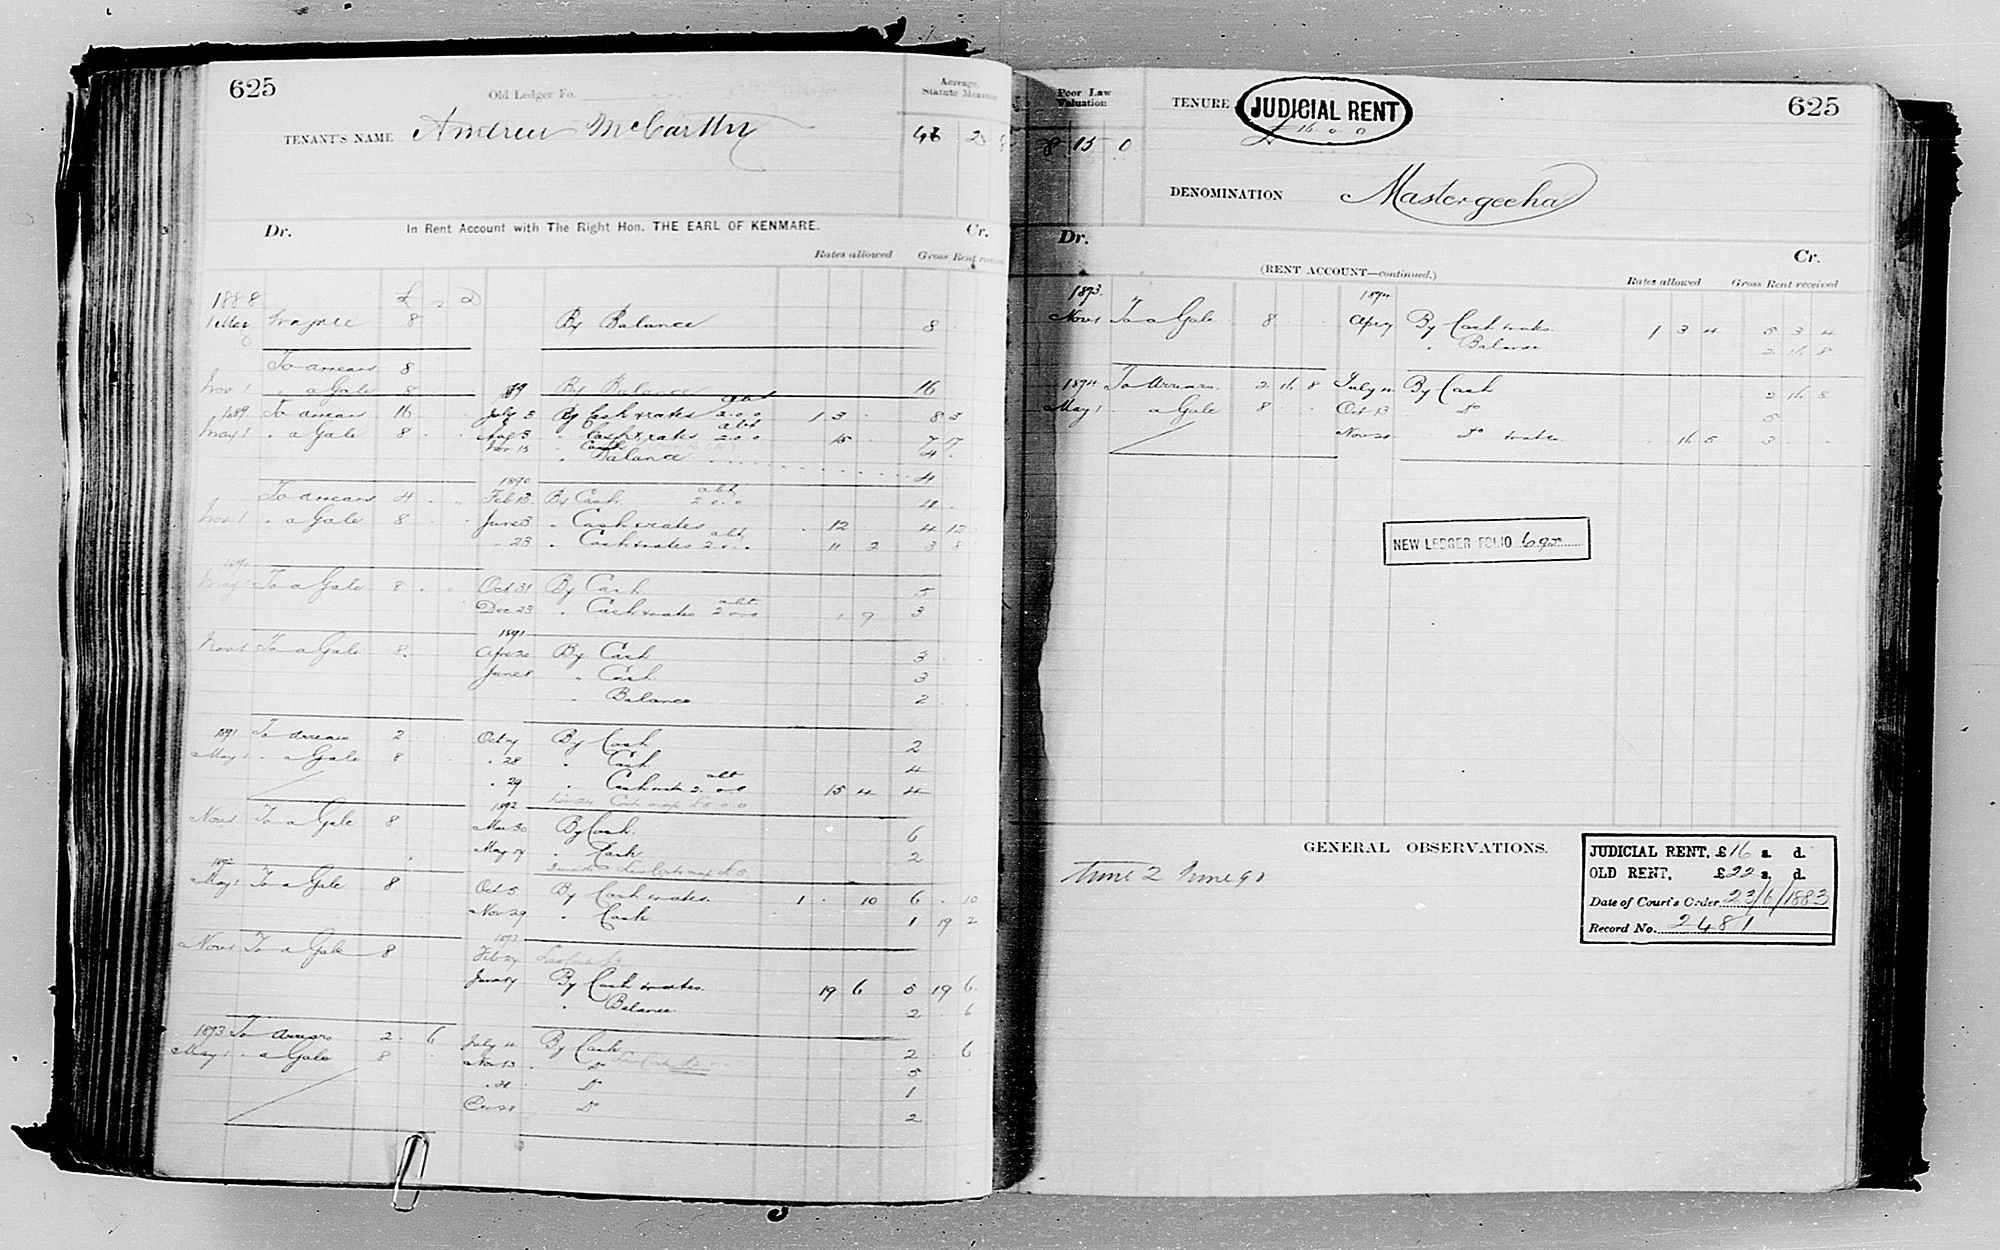 625
Old Ledger Fo.
Acreage, Statute Measure
TENANT'S NAME Andrew McCarthy
In Rent Account with The Right Hon. THE EARL OF KENMARE.
Dr. Cr.
Rates allowed Gross Rent
1888 £ s D
1 May 8 By Balance 8
To arrears 8
Nov 1 " a Gale 8 89 By Balance 16
1889 To arrears 16 July 3 By Cash & rates abt 2.0.0 1 3 8 3
May 1 " a Gale 8 Aug 3 " Cash & rates abt 2.0.0 15 7 17
Nov 15 Cash 4
" Balance 4
1890
To arrears 4 Feb 13 By Cash abt 2.0.0 4
Nov 1 " a Gale 8 June 3 " Cash & rates 12 4 12
" 23 " Cash & rates abt 2.0.0 11 2 3 8
1890
May 1 To a Gale 8 Oct 31 By Cash 5
Dec 23 " Cash & rates abt 2.0.0 1 9 3
1891
Nov 1 To a Gale 8 Apr 20 By Cash 3
June 1 " Cash 3
" Balance 2
1891 To arrears 2 Oct 7 By Cash 2
May 1 " a Gale 8 " 28 " Cash 4
" 29 " Cash & rates abt 2.0.0 15 4 4
1892
Nov 1 To a Gale 8 Mar 30 By Cash 6
May 17 " Cash 2
1892
May 1 To a Gale 8 Oct 5 By Cash & rates 1 . 10 6 . 10
Nov 29 " Cash 1 19 2
1893
Nov 1 To a Gale 8 Feb 27
June 17 By Cash & rates 19 6 5 19 6
" Balance 2 . 6
1893 To Arrears 2 . 6 July 11 By Cash 2 . 6
May 1 " a Gale 8 Nov 13 " Do 5
" 21 Do 1
Do 2
Poor Law Valuation
8 15 0
TENURE JUDICIAL RENT 625
£16 . 0 . 0
DENOMINATION Mastergeeha
Dr. (RENT ACCOUNT—continued.) Cr.
Rates allowed Gross Rent received
1893 1894
Nov 1 To a Gale 8 Apr 7 By Cash & rates 1 3 4 5 3 4
" Balance 2 16 8
1894 To Arrears 2 16 8 July 11 By Cash 2 16 8
May 1 a Gale 8 Oct 13 Do 5
Nov 20 Do & rates 16 5 3
NEW LEDGER FOLIO
GENERAL OBSERVATIONS.
JUDICIAL RENT, £16 s. d.
OLD RENT, £22 s. d.
Date of Court's Order 23/6/1883
Record No. 2481